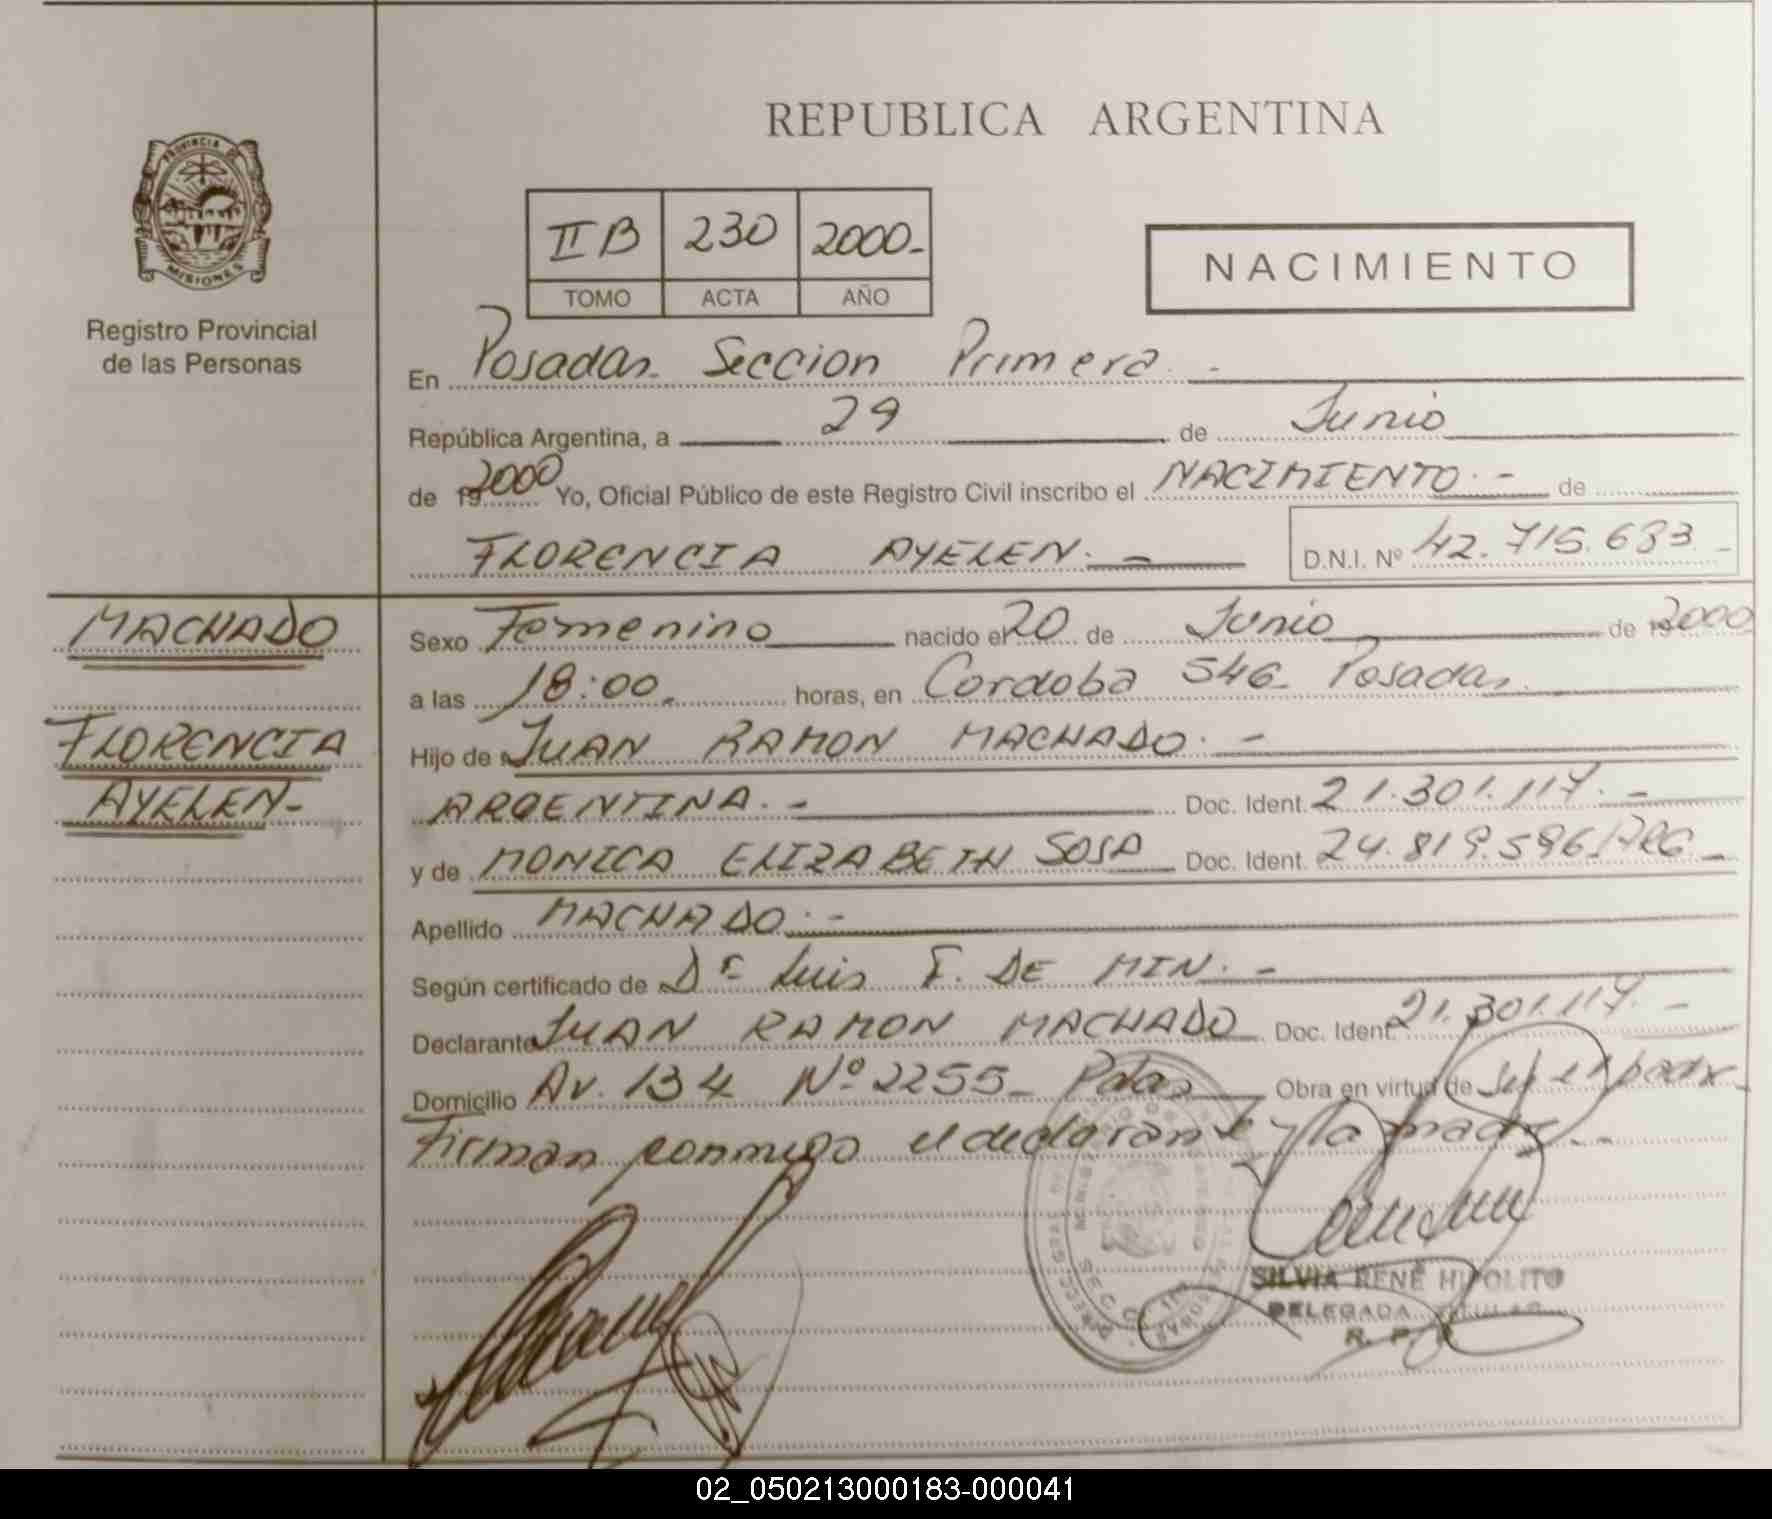 REPUBLICA ARGENTINA
PROVINCIA DE
MISIONES
Registro Provincial
de las Personas
II B 230 2000-
TOMO ACTA AÑO
NACIMIENTO
En Posadas Seccion Primera.-
República Argentina, a 29 de Junio
de 192000 Yo, Oficial Público de este Registro Civil inscribo el NACIMIENTO.- de
FLORENCIA AYELEN.- D.N.I. Nº 42.715.683.-
MACHADO
FLORENCIA
AYELEN-
Sexo Femenino nacido el 20 de Junio de 192000
a las 18:00. horas, en Cordoba 546- Posadas.
Hijo de JUAN RAMON MACHADO.-
ARGENTINA.- Doc. Ident. 21.301.117.-
y de MONICA ELIZABETH SOSA Doc. Ident. 24.819.596 ARG-
Apellido MACHADO.-
Según certificado de Dr Luis F. DE MIN.-
Declarante JUAN RAMON MACHADO Doc. Ident. 21.301.117.-
Domicilio Av. 134 Nº 2255- Pdas Obra en virtud de
Firman conmigo el declarante y la madre.-
SILVIA RENÉ HIPOLITO
DELEGADA TITULAR
R. P. P.
02_050213000183-000041